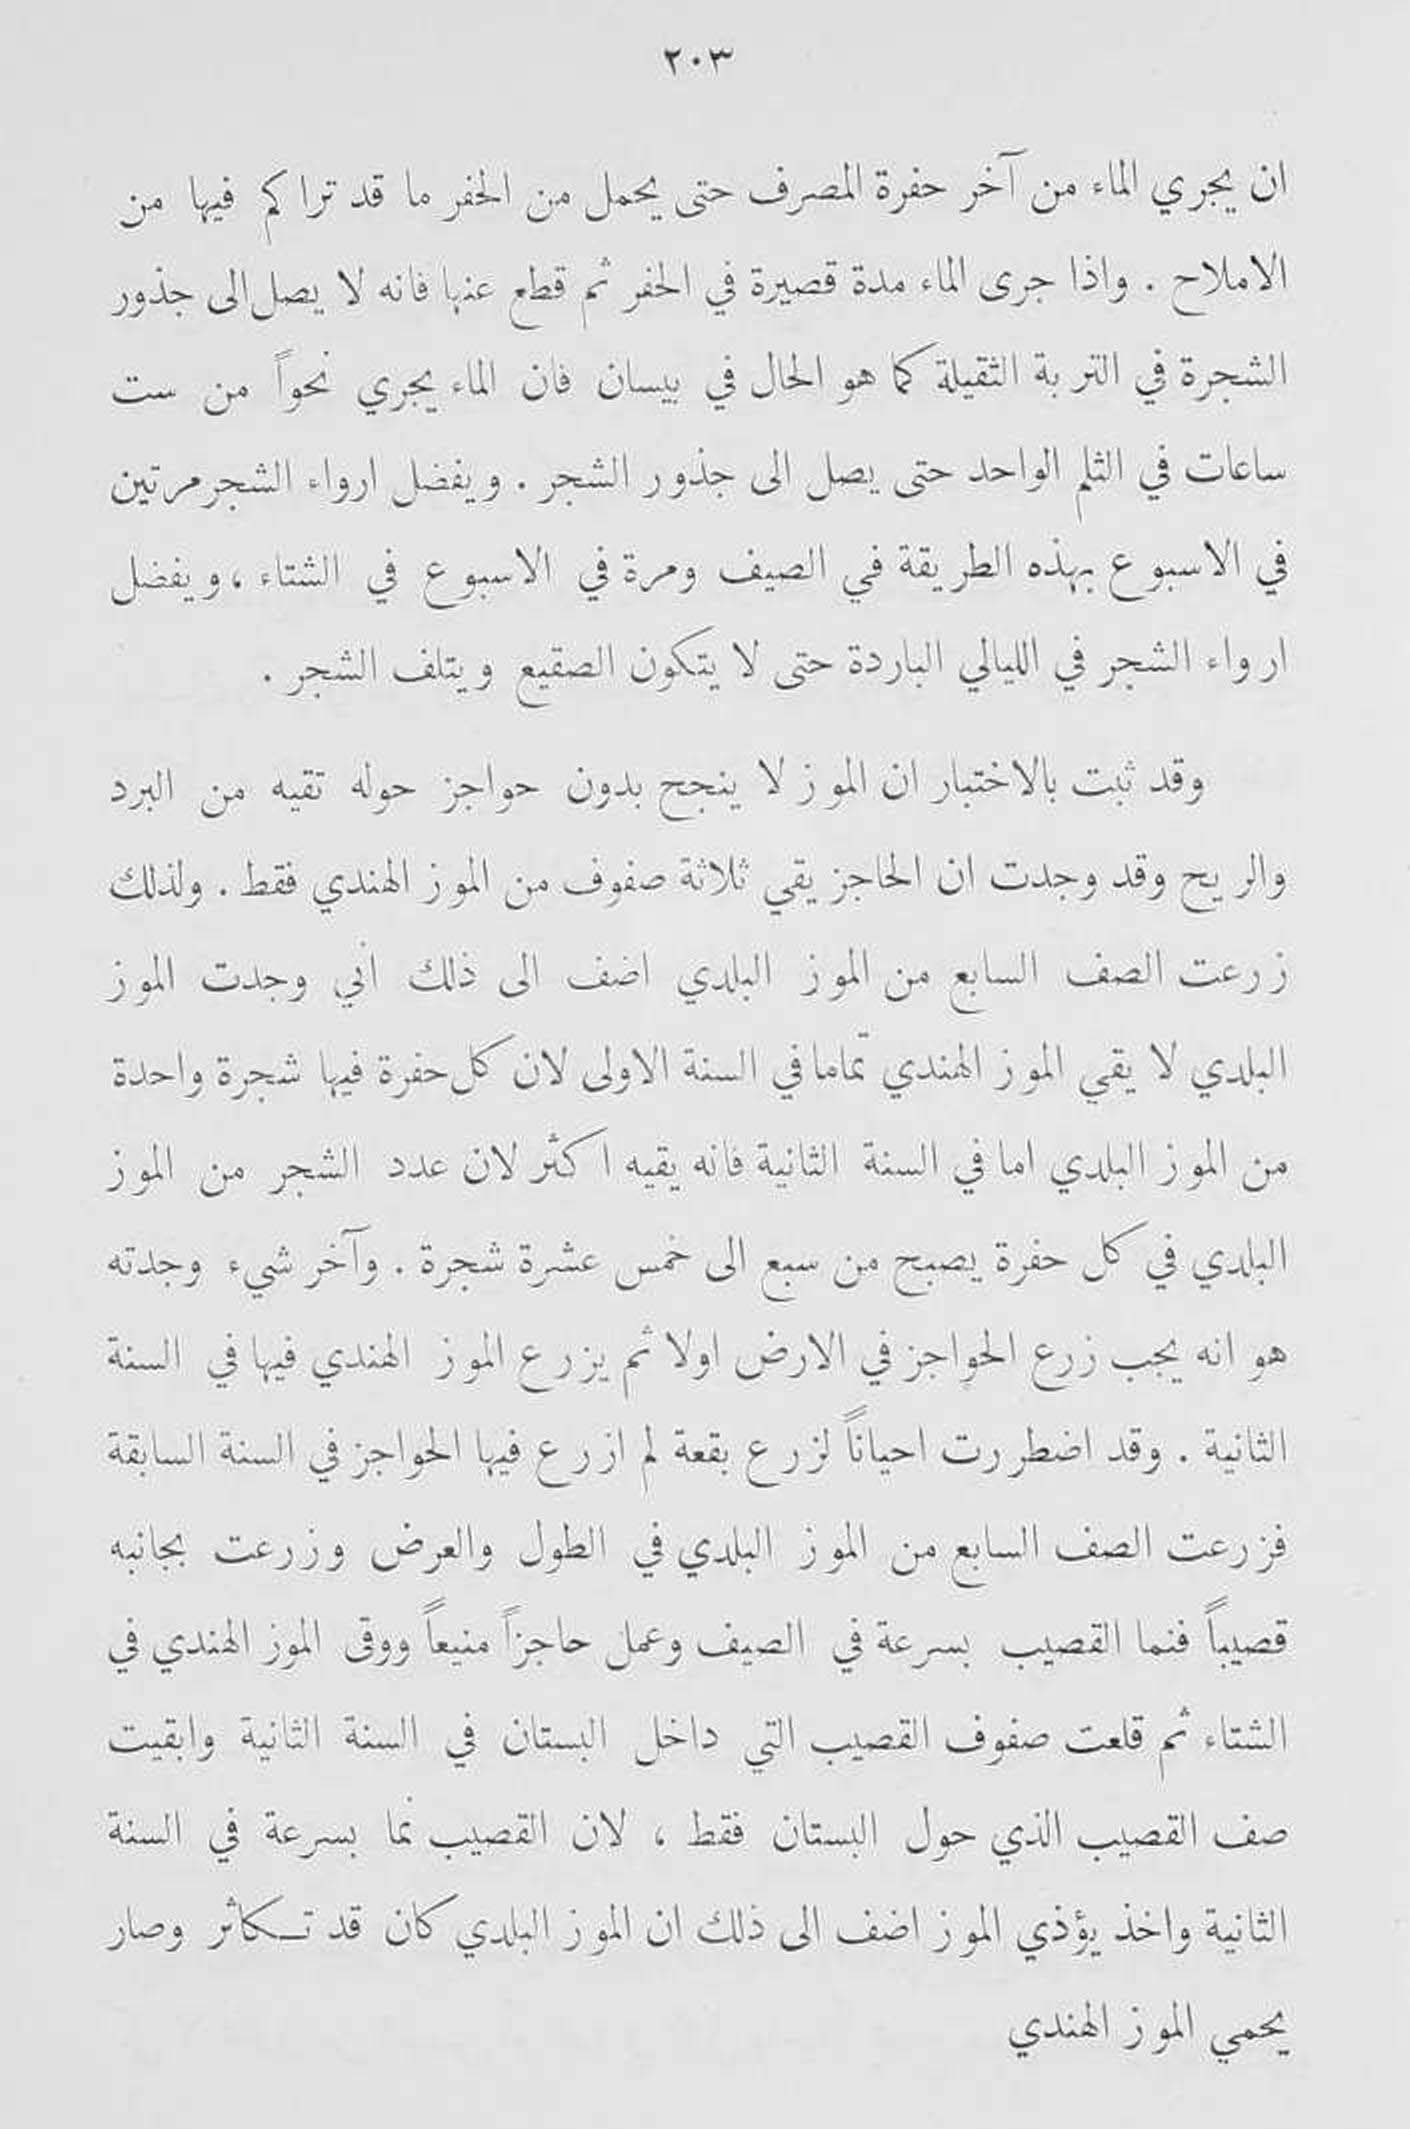 ٢٠٣
ان يجري الماء من آخر حفرة المصرف حتى يحمل من الحفر ما قد تراكم فيها من
الاملاح . واذا جرى الماء مدة قصيرة في الحفر ثم قطع عنها فانه لا يصل الى جذور
الشجرة في التربة الثقيلة كما هو الحال في بيسان فان الماء يجري نحواً من ست
ساعات في الثلم الواحد حتى يصل الى جذور الشجر . ويفضل ارواء الشجر مرتين
في الاسبوع بهذه الطريقة في الصيف ومرة في الاسبوع في الشتاء ، ويفضل
ارواء الشجر في الليالي الباردة حتى لا يتكون الصقيع ويتلف الشجر .
وقد ثبت بالاختبار ان الموز لا ينجح بدون حواجز حوله تقيه من البرد
والريح وقد وجدت ان الحاجز يقي ثلاثة صفوف من الموز الهندي فقط . ولذلك
زرعت الصف السابع من الموز البلدي اضف الى ذلك أني وجدت الموز
البلدي لا يقي الموز الهندي تماما في السنة الاولى لان كل حفرة فيها شجرة واحدة
من الموز البلدي اما في السنة الثانية فانه يقيه اكثر لان عدد الشجر من الموز
البلدي في كل حفرة يصبح من سبع الى خمس عشرة شجرة . وآخر شيء وجدته
هو انه يجب زرع الحواجز في الارض اولا ثم يزرع الموز الهندي فيها في السنة
الثانية . وقد اضطررت احياناً لزرع بقعة لم ازرع فيها الحواجز في السنة السابقة
فزرعت الصف السابع من الموز البلدي في الطول والعرض وزرعت بجانبه
قصيباً فنما القصيب بسرعة في الصيف وعمل حاجزاً منيعاً ووقى الموز الهندي في
الشتاء ثم قلعت صفوف القصيب التي داخل البستان في السنة الثانية وابقيت
صف القصيب الذي حول البستان فقط ، لان القصيب نما بسرعة في السنة
الثانية واخذ يؤذي الموز اضف الى ذلك ان الموز البلدي كان قد تـكاثر وصار
يحمي الموز الهندي